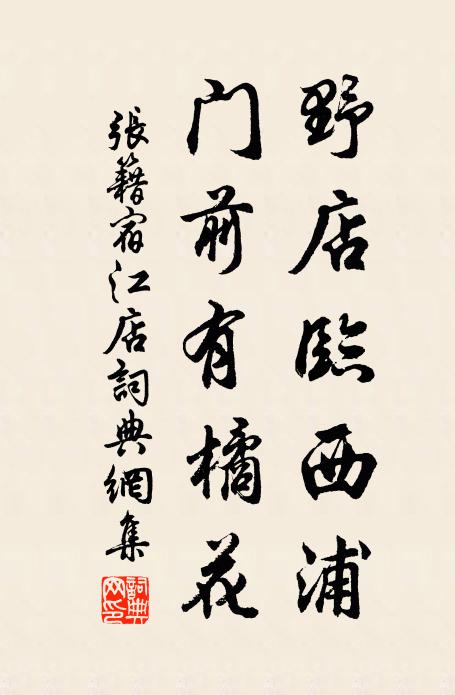 野店臨西浦
门前有橘花
張籍宿江店詞典網集
詞典網印